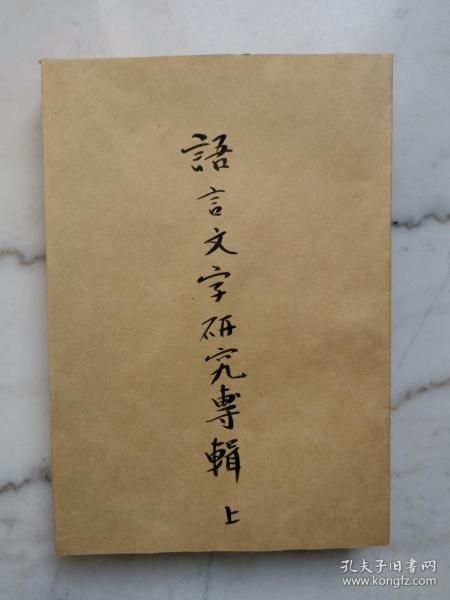 語言文字研究專輯 上
孔夫子旧书网
www.kongfz.com